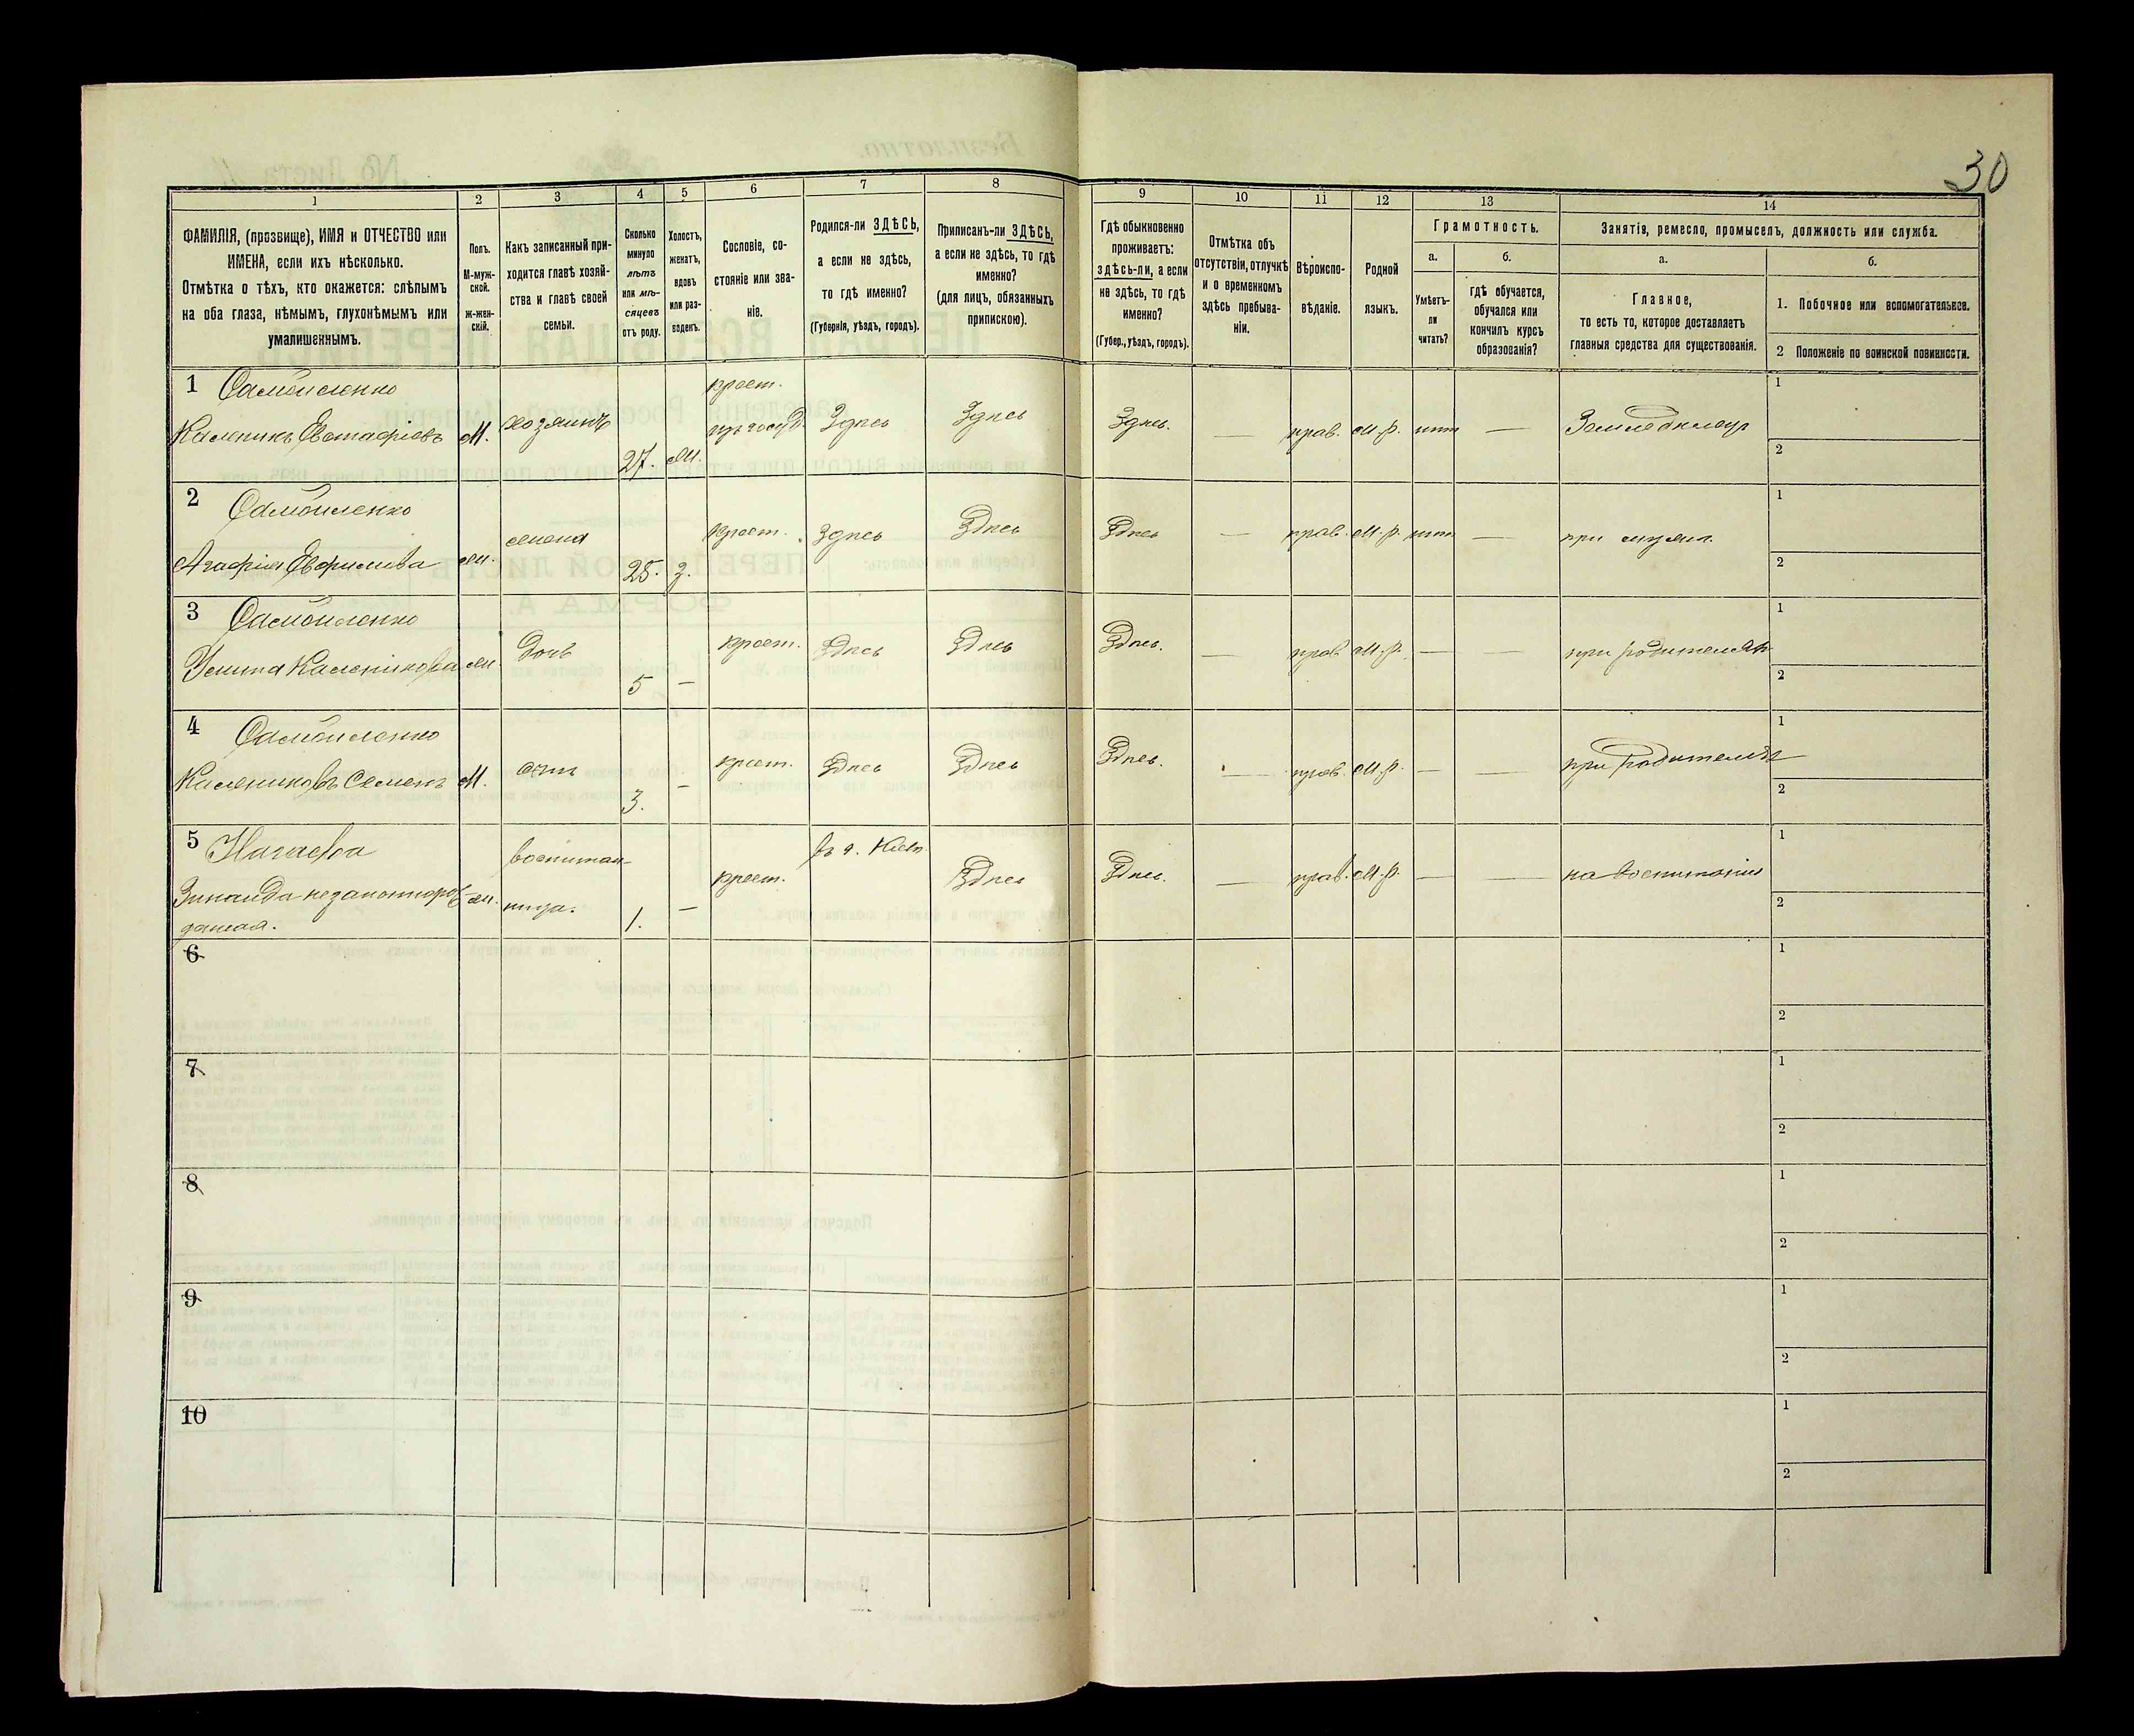 30
1
2
3
4
5
6
7
8
9
10
11
12
13
14
ФАМИЛІЯ, (прозвище), ИМЯ и ОТЧЕСТВО или
ИМЕНА, если ихъ нѣсколько.
Отмѣтка о тѣхъ, кто окажется: слѣпымъ
на оба глаза, нѣмымъ, глухонѣмымъ или
умалишеннымъ.
Полъ.
М-муж-
ской.
ж-жен-
скій.
Какъ записанный при-
ходится главѣ хозяй-
ства и главѣ своей
семьи.
Сколько
минуло
лѣтъ
или мѣ-
сяцевъ
отъ роду.
Холостъ,
женатъ,
вдовъ
или раз-
веденъ.
Сословіе, со-
стояніе или зва-
ніе.
Родился-ли ЗДѢСЬ,
а если не здѣсь,
то гдѣ именно?
(Губернія, уѣздъ, городъ).
Приписанъ-ли ЗДѢСЬ,
а если не здѣсь, то гдѣ
именно?
(для лицъ, обязанныхъ
припискою).
Гдѣ обыкновенно
проживаетъ:
здѣсь-ли, а если
не здѣсь, то гдѣ
именно?
(Губер., уѣздъ, городъ).
Отмѣтка объ
отсутствіи, отлучкѣ
и о временномъ
здѣсь пребыва-
ніи.
Вѣроиспо-
вѣданіе.
Родной
языкъ.
Грамотность.
а.
Умѣетъ-
ли
читать?
б.
гдѣ обучается,
обучался или
кончилъ курсъ
образованія?
Занятія, ремесло, промыселъ, должность или служба.
а.
Главное,
то есть то, которое доставляетъ
главныя средства для существованія.
б.
1. Побочное или вспомогательное.
2 Положеніе по воинской повинности.
1 Самойленко
Каленикъ Евстафіевъ
М.
хозяинъ
27.
ж.
крест.
изъ госуд.
Здѣсь
Здѣсь
Здѣсь.
—
прав.
м.р.
нѣт
—
Земледѣлец
1
2
2 Самойленко
Агафія Ефимова
ж.
жена
28.
з.
крест.
Здѣсь
Здѣсь
Здѣсь
—
прав.
м.р.
нѣт
—
при муже
1
2
3 Самойленко
Каленикова
ж.
дочь
5
—
крест.
Здѣсь
Здѣсь
Здѣсь.
—
прав
м.р.
—
—
при родителях
1
2
4 Самойленко
Калениковъ Семенъ
М.
сын
3.
—
крест.
Здѣсь
Здѣсь
Здѣсь.
—
прав.
м.р.
—
—
при родителях
1
2
5
Зинаида незаконнорож-
денная.
ж.
воспитан-
ница.
1.
—
крест.
въ г. Кіев.
Здѣсь
Здѣсь.
—
прав.
м.р.
—
—
на воспитаніи
1
2
6
1
2
7
1
2
8
1
2
9
1
2
10
1
2